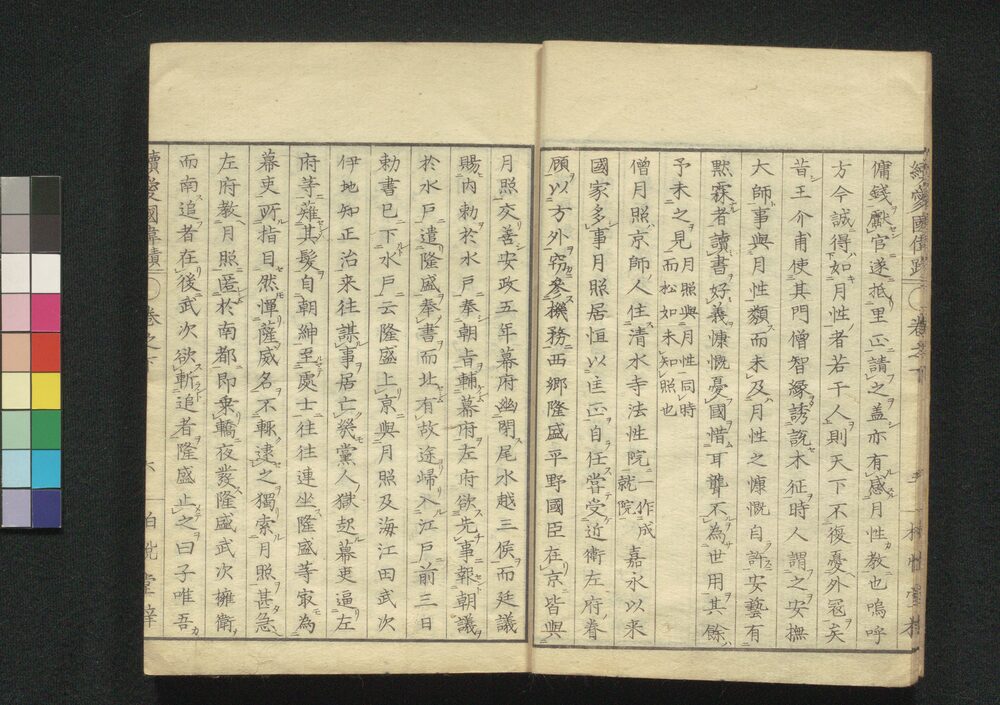 傭錢獻官遂抵里正請之盖亦有感月性教也嗚呼
方今誠得如月性者若干人則天下不復憂外冦矣
昔王介甫使其門僧智縁誘説木征時人謂之安撫
大師事與月性類而未及月性之慷慨自許安藝有
黙霖者讀書好義慷慨憂國惜耳聾不為世用其餘
予未之見月照與月性同時
而松如未知照也
僧月照京師人住清水寺法性院一作成
就院嘉永以来
國家多事月照居恒以匡正自任嘗受近衛左府眷
顧以方外窃參機務西郷隆盛平野國臣在京皆與
月照交善安政五年幕府幽閉尾水越三侯而廷議
賜内勅於水戸奉朝旨輔幕府左府欲先事報朝議
於水戸遣隆盛奉書而北有故途歸入江戸前三日
勅書已下水戸云隆盛上京與月照及海江田武次
伊地知正治来往謀事居亡幾黨人獄起幕吏逼左
府等薙其髮自朝紳至處士往往連坐隆盛等㝡為
幕吏所指目然憚薩威名不輙逮之獨索月照甚急
左府教月照匿於南都即乗轎夜發隆盛武次擁衛
而南追者在後武次欲斬追者隆盛止之曰子唯吾
續愛國偉蹟 卷之下 六